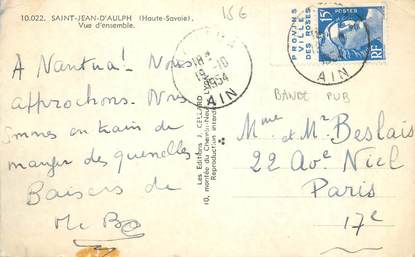 10.022. SAINT-JEAN-D'AULPH (Haute-Savoie).
Vue d'ensemble.
15€
A Nantua! Nous
approchons. Nous
sommes en train de
manger des quenelles
Baisers de
18H
19-10
1954
AIN
Les Editions J. CELLARD, Lyon
10, montée du Chemin-Neuf
Reproduction interdite
PROVINS
VILLE
DES ROSES
15F
POSTES
RF
AIN
BANDE PUB
Mme et Mr Beslais
22 Ave Niel
Paris
17e